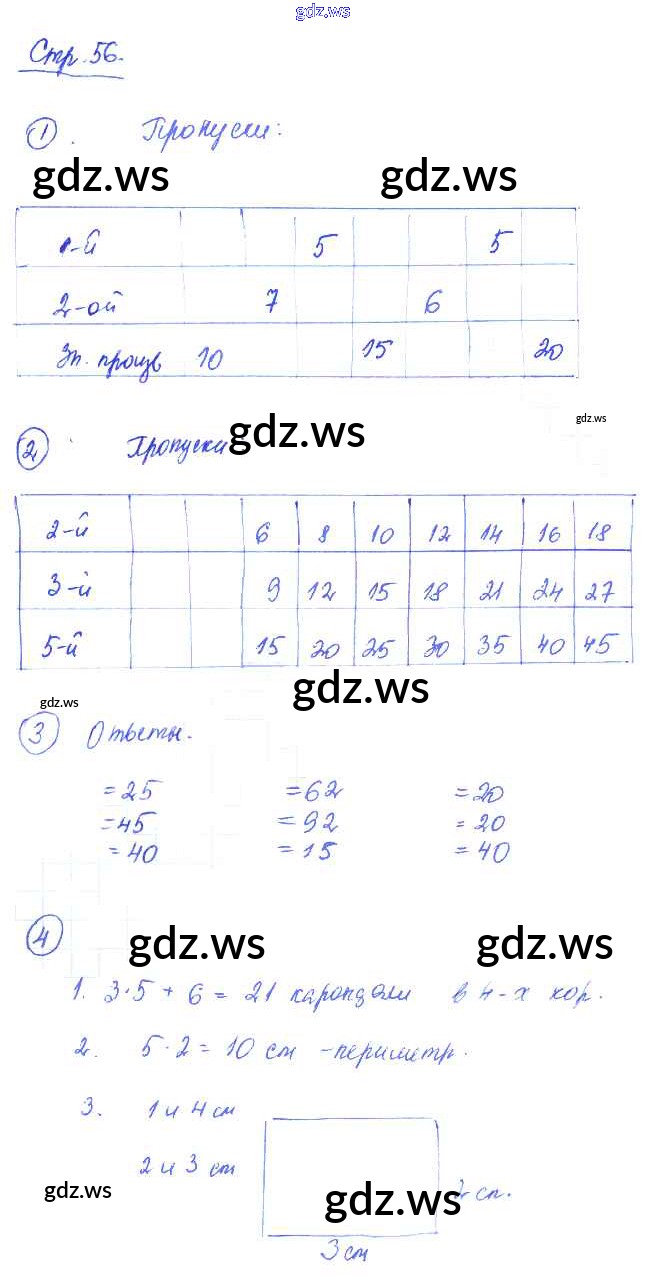 gdz.ws
Стр. 56.
1. Пропуски:
gdz.ws gdz.ws
1-й 5 5
2-ой 7 6
Зн. произв 10 15 20
gdz.ws
2 Пропуски gdz.ws
2-й 6 8 10 12 14 16 18
3-й 9 12 15 18 21 24 27
5-й 15 20 25 30 35 40 45
gdz.ws gdz.ws
3 Ответы.
=25 =62 =20
=45 =92 =20
=40 =15 =40
4 gdz.ws gdz.ws
1. 3·5 + 6 = 21 карандаш в 4-х кор.
2. 5·2 = 10 см - периметр.
3. 1 и 4 см
2 и 3 см
gdz.ws gdz.ws 2 см.
3 см